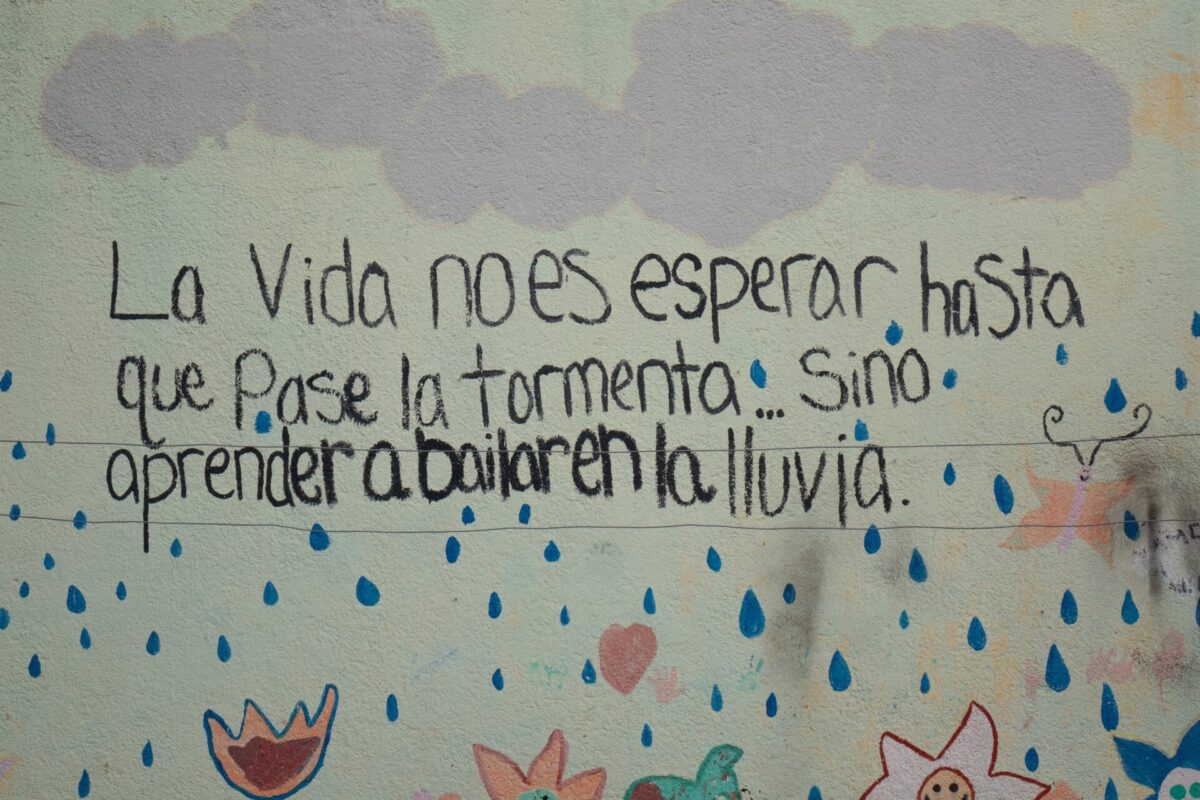 La Vida no es esperar hasta
que Pase la tormenta... Sino
aprender a bailar en la lluvia.